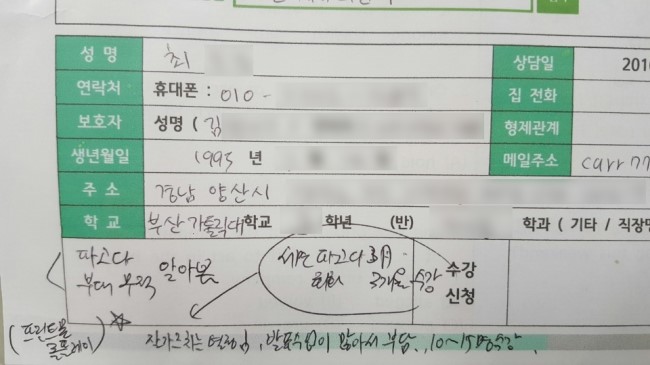 성 명 최
상담일 2016
연락처 휴대폰 : 010 -
집 전화
보호자 성명 ( 김
형제관계
생년월일 1995 년
메일주소 carr77
주 소 경남 양산시
학 교 부산가톨릭대학교 학년 (반) 학과 ( 기타 / 직장명
파고다
부대 부근 알아봄
서면 파고다 3月
회화 3개월 수강
수강
신청
(프린트물
롤플레이)
잘 가르치는 선생님, 발표수업이 많아서 부담, 10~15명 수강,